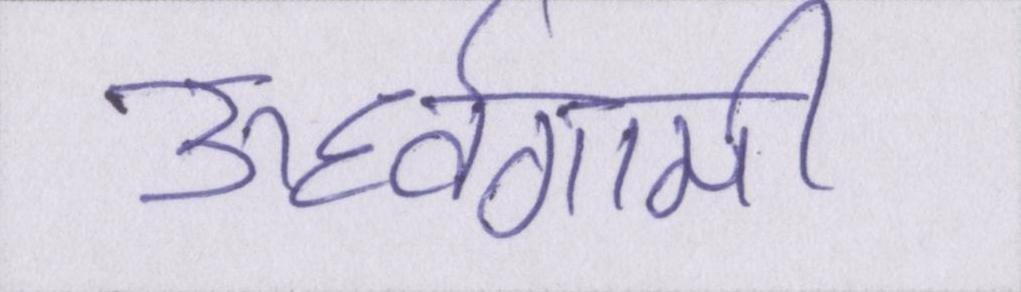 ऊर्ध्वगामी